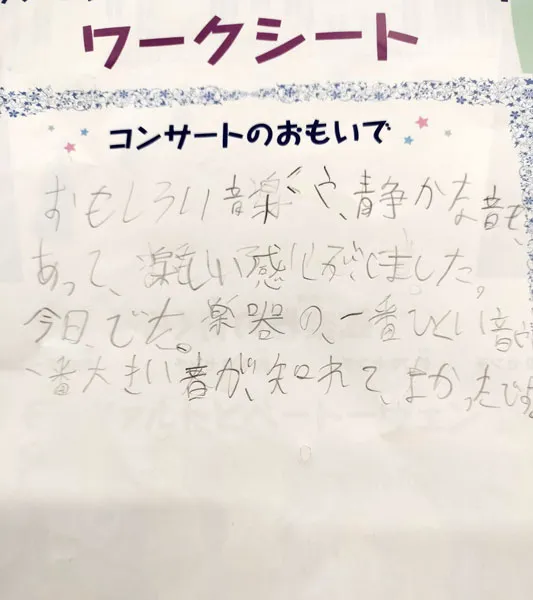 ワークシート
コンサートのおもいで
おもしろい音楽や、静かな音も、
あって、楽しい感じがしました。
今日、でた。楽器の、一番ひくい音や
一番大きい音が、知れて、よかったです。